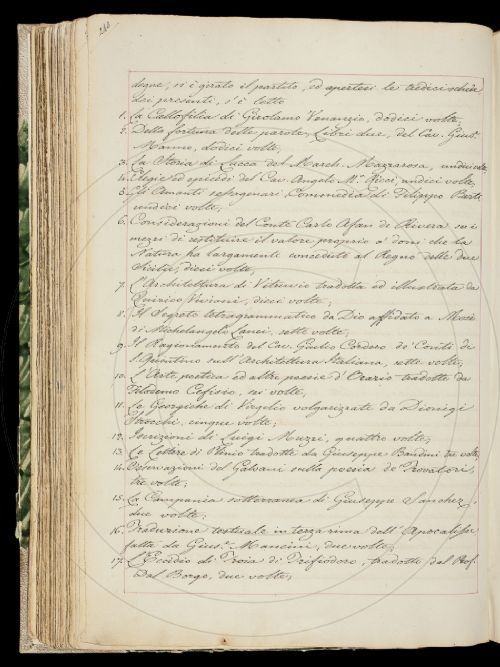 240
degne, si è girato il partito, ed apertesi le tredici schede
dei presenti, s'è letto
1. La Callofilia di Girolamo Venanzio, dodici volte;
2. Della fortuna delle parole, Libri due, del Cav. Gius.e
Manno, dodici volte;
3. La Storia di Lucca del March. Mazzarosa, undici volte;
4. Elegie ed episodi del Cav. Angelo M.a Ricci, undici volte;
5. Gli Amanti sessagenari Commedia di Filippo Berti
undici volte;
6. Considerazioni del Conte Carlo Afan de Rivera su i
mezzi di restituire il valore proprio a' doni che la
Natura ha largamente conceduto al Regno delle due
Sicilie, dieci volte;
7. L'Architettura di Vitruvio tradotta ed illustrata da
Quirico Viviani, dieci volte;
8. Il Segreto tetragrammatico da Dio affidato a Mosè
di Michelangelo Lanci, sette volte;
9. Il Ragionamento del Cav. Giulio Cordero de' Conti di
S. Quintino sull'Architettura Italiana, sette volte;
10. L'Arte poetica ed altre poesie d'Orazio tradotte da
Filodemo Cefisio, sei volte;
11. Le Georgiche di Virgilio volgarizzate da Dionigi
Strocchi, cinque volte;
12. Iscrizioni di Luigi Muzzi, quattro volte;
13. Le Lettere di Plinio tradotte da Giuseppe Bandini tre volte;
14. Osservazioni del Galvani sulla poesia de' Trovatori,
tre volte;
15. La Campania sotterranea di Giuseppe Sanchez,
due volte;
16. Traduzione testuale in terza rima dell'Apocalisse
fatta da Gius.e Mancini, due volte;
17. L'Eccidio di Troia di Trifiodoro, tradotto dal Prof.
Dal Borgo, due volte;